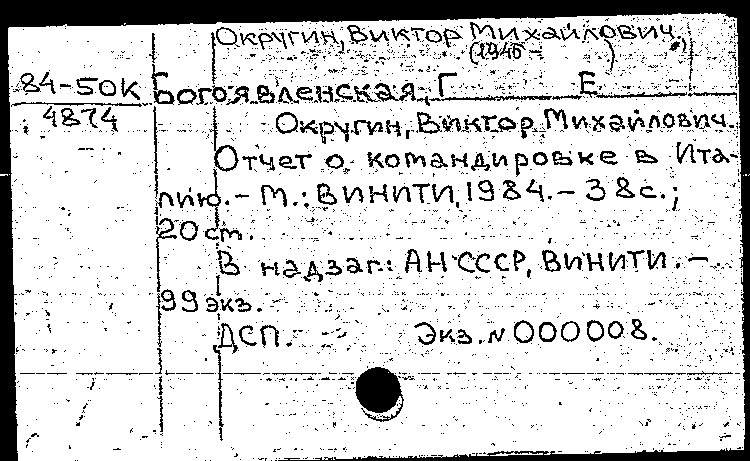 Округин, Виктор Михайлович.
(1945 - ) *)
84-50К Богоявленская, Г Е
4874
Округин, Виктор Михайлович.
Отчет о командировке в Ита-
лию. - М.: ВИНИТИ, 1984. - 38 с.;
20 ст.
В надзаг.: АН СССР, ВИНИТИ. -
99 экз.
ДСП. Экз. N 000008.